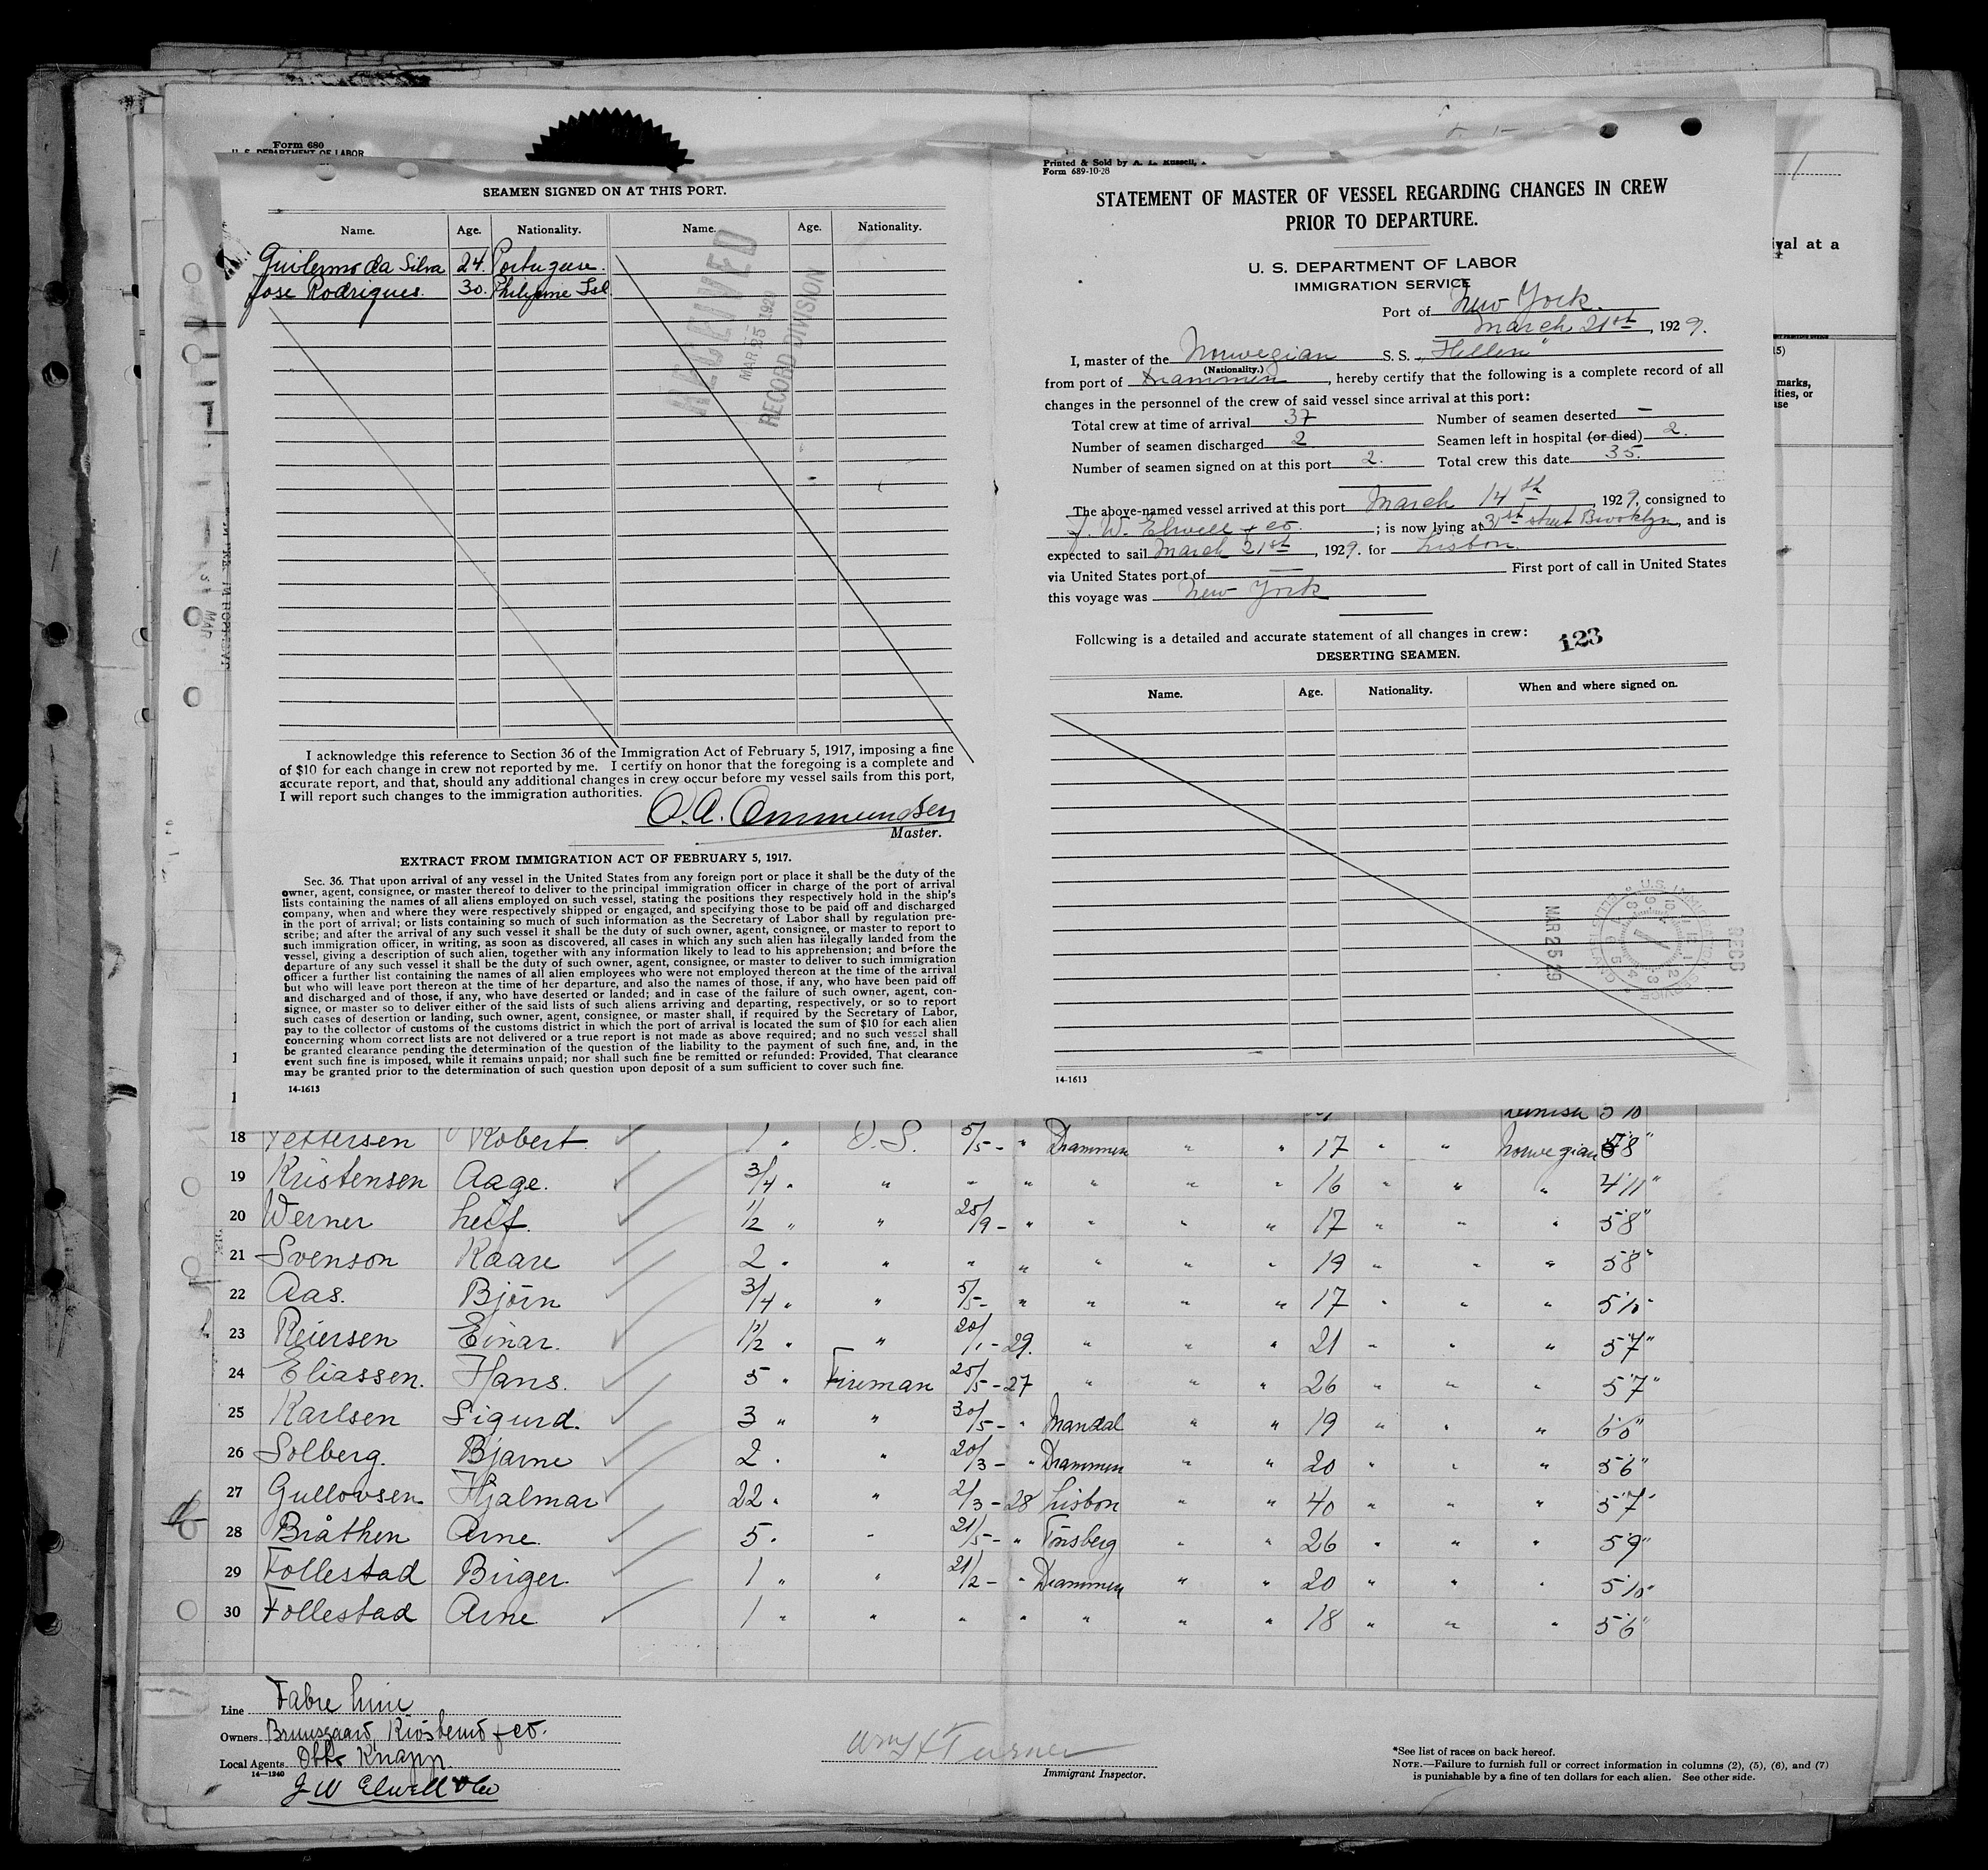 Form 680
U. S. DEPARTMENT OF LABOR
SEAMEN SIGNED ON AT THIS PORT.
Name. Age. Nationality. Name. Age. Nationality.
Guilermo da Silva 24. Portuguese.
Jose Rodrigues. 30. Philipine Isl.
RECEIVED
MAR 25 1929
RECORD DIVISION
I acknowledge this reference to Section 36 of the Immigration Act of February 5, 1917, imposing a fine
of $10 for each change in crew not reported by me. I certify on honor that the foregoing is a complete and
accurate report, and that, should any additional changes in crew occur before my vessel sails from this port,
I will report such changes to the immigration authorities.
O. A. Ammundsen
Master.
EXTRACT FROM IMMIGRATION ACT OF FEBRUARY 5, 1917.
Sec. 36. That upon arrival of any vessel in the United States from any foreign port or place it shall be the duty of the
owner, agent, consignee, or master thereof to deliver to the principal immigration officer in charge of the port of arrival
lists containing the names of all aliens employed on such vessel, stating the positions they respectively hold in the ship's
company, when and where they were respectively shipped or engaged, and specifying those to be paid off and discharged
in the port of arrival; or lists containing so much of such information as the Secretary of Labor shall by regulation pre-
scribe; and after the arrival of any such vessel it shall be the duty of such owner, agent, consignee, or master to report to
such immigration officer, in writing, as soon as discovered, all cases in which any such alien has illegally landed from the
vessel, giving a description of such alien, together with any information likely to lead to his apprehension; and before the
departure of any such vessel it shall be the duty of such owner, agent, consignee, or master to deliver to such immigration
officer a further list containing the names of all alien employees who were not employed thereon at the time of the arrival
but who will leave port thereon at the time of her departure, and also the names of those, if any, who have been paid off
and discharged and of those, if any, who have deserted or landed; and in case of the failure of such owner, agent, con-
signee, or master so to deliver either of the said lists of such aliens arriving and departing, respectively, or so to report
such cases of desertion or landing, such owner, agent, consignee, or master shall, if required by the Secretary of Labor,
pay to the collector of customs of the customs district in which the port of arrival is located the sum of $10 for each alien
concerning whom correct lists are not delivered or a true report is not made as above required; and no such vessel shall
be granted clearance pending the determination of the question of the liability to the payment of such fine, and, in the
event such fine is imposed, while it remains unpaid; nor shall such fine be remitted or refunded: Provided, That clearance
may be granted prior to the determination of such question upon deposit of a sum sufficient to cover such fine.
14-1613
Printed & Sold by A. L. Russell,
Form 689-10-28
STATEMENT OF MASTER OF VESSEL REGARDING CHANGES IN CREW
PRIOR TO DEPARTURE.
U. S. DEPARTMENT OF LABOR
IMMIGRATION SERVICE
Port of New York.
March 21st, 1929.
I, master of the Norwegian S. S. "Hellen"
(Nationality.)
from port of Drammen, hereby certify that the following is a complete record of all
changes in the personnel of the crew of said vessel since arrival at this port:
Total crew at time of arrival 37 Number of seamen deserted —
Number of seamen discharged 2 Seamen left in hospital (or died) 2.
Number of seamen signed on at this port 2. Total crew this date 35.
The above-named vessel arrived at this port March 14th, 1929, consigned to
J. W. Elwell & co.; is now lying at 31st street Brooklyn, and is
expected to sail March 21st, 1929. for Lisbon.
via United States port of — First port of call in United States
this voyage was New York
Following is a detailed and accurate statement of all changes in crew:
123
DESERTING SEAMEN.
Name. Age. Nationality. When and where signed on.
U.S. IMMIGRATION SERVICE
ELLIS ISLAND
MAR 25 29
14-1613
ival at a
marks,
18 Pettersen Robert 1 " O.S. 5/5- " Drammen " " 17 " " Norwegian 5'8"
19 Kristensen Aage. 3/4 " " " " " " " 16 " " " 4'11"
20 Werner Leif. 1/2 " " 25/9- " " " " 17 " " " 5'8"
21 Svenson Kaare 2 " " " " " " " 19 " " " 5'8"
22 Aas. Björn 3/4 " " 5/5- " " " " 17 " " " 5'10"
23 Reiersen Einar. 1 1/2 " " 20/1-29. " " " 21 " " " 5'7"
24 Eliassen. Hans. 5 " Fireman 25/5-27 " " " 26 " " " 5'7"
25 Karlsen Sigurd. 3 " " 30/5- " Mandal " " 19 " " " 6'0"
26 Solberg. Bjarne 2 " " 20/3- " Drammen " " 20 " " " 5'6"
27 Gullovsen Hjalmar 22 " " 2/3-28 Lisbon " " 40 " " " 5'7"
28 Bråthen Arne. 5 " " 21/5- " Tönsberg " " 26 " " " 5'9"
29 Follestad Birger. 1 " " 21/2- " Drammen " " 20 " " " 5'10"
30 Follestad Arne 1 " " " " " " " 18 " " " 5'6"
Line Fabre Line
Owners Bruusgaard, Kiösterud & co.
Local Agents Otto Knapp.
14-1240
J W Elwell & Co
Wm H Turner
Immigrant Inspector.
*See list of races on back hereof.
NOTE.—Failure to furnish full or correct information in columns (2), (5), (6), and (7)
is punishable by a fine of ten dollars for each alien. See other side.